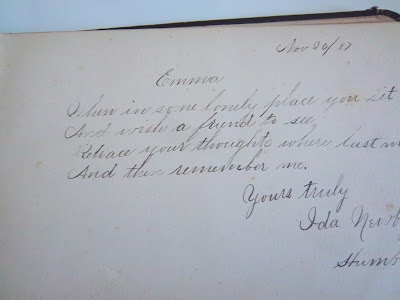 Nov 20/87
Emma
When in some lonely place you sit
And wish a friend to see,
Retrace your thoughts where last
And then remember me.
Yours truly
Ida